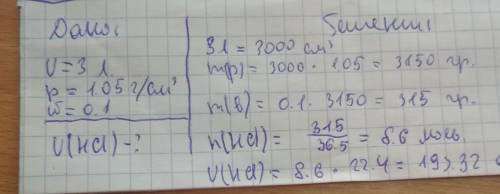 Дано:
V = 3 л.
p = 1.05 г/см³
ω = 0.1
V(HCl) - ?
Решение:
3 л = 3000 см³
m(p) = 3000 · 1.05 = 3150 гр.
m(в) = 0.1 · 3150 = 315 гр.
n(HCl) = 315/36.5 = 8.6 моль.
V(HCl) = 8.6 · 22.4 = 193.32